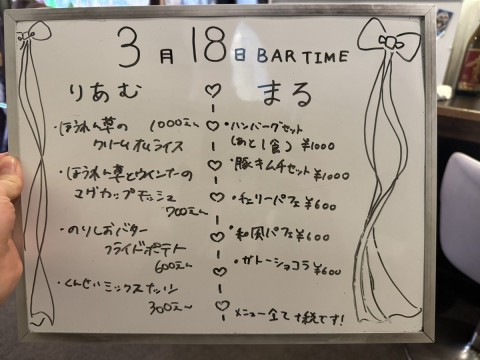 3月18日 BAR TIME
りあむ
・ほうれん草の 1000えん
クリームオムライス
・ほうれん草とウインナーの
マグカップキッシュ
700えん
・のりしおバター
フライドポテト
600えん
・くんせいミックスナッツ
300えん
まる
・ハンバーグセット
(あと1食) ¥1000
・豚キムチセット ¥1000
・チェリーパフェ ¥600
・和風パフェ ¥600
・ガトーショコラ ¥600
メニュー全て+税です!